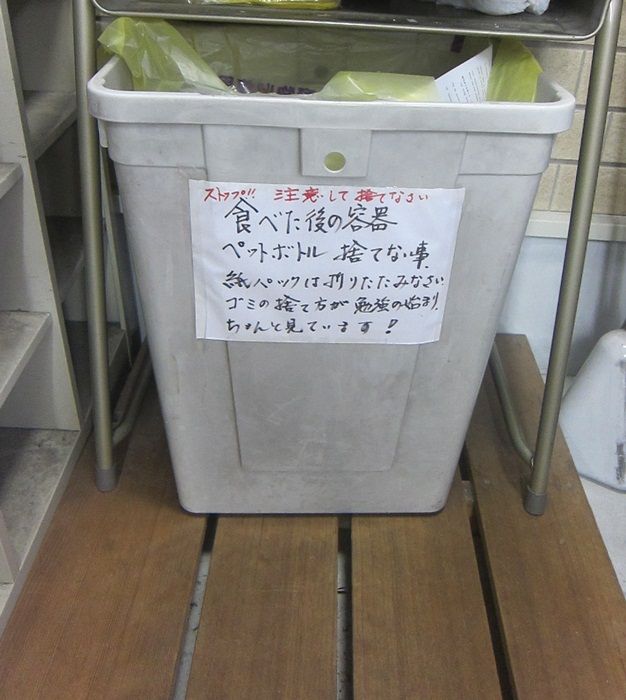 ストップ!! 注意して捨てなさい
食べた後の容器
ペットボトル 捨てない事.
紙パックは折りたたみなさい.
ゴミの捨て方が勉強の始まり.
ちゃんと見ています!